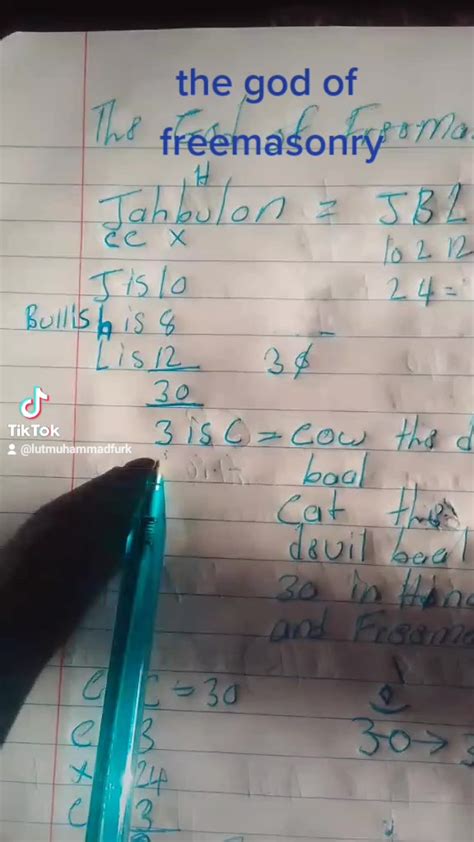 the god of
freemasonry
The God of Freema
H
Jahbulon = JBL
CC X
10 2 12
J is 10
24 =
Bullish is 8
L is 12
30
TikTok
@lutmuhammadfurk
3 is C = cow the d
baal
Cat the
devil baal
30 in
and Freema
= 30
30 → 3
C 3
X 24
C 3